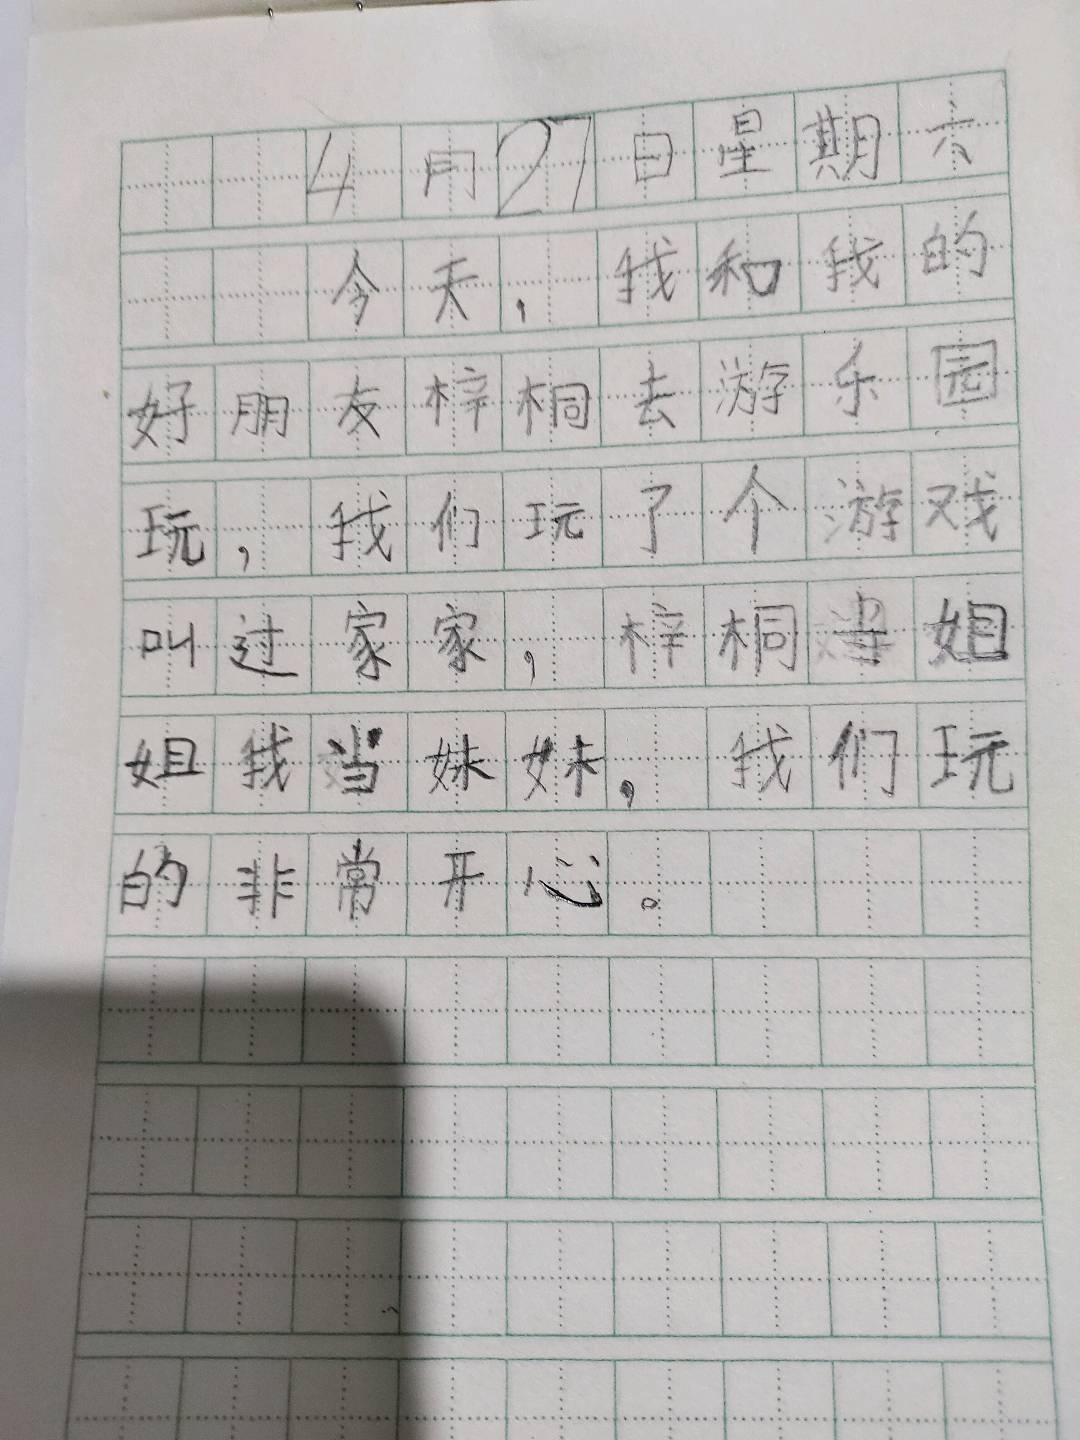 4月27日星期六
今天,我和我的
好朋友梓桐去游乐园
玩,我们玩了个游戏
叫过家家,梓桐当姐
姐我当妹妹,我们玩
的非常开心。